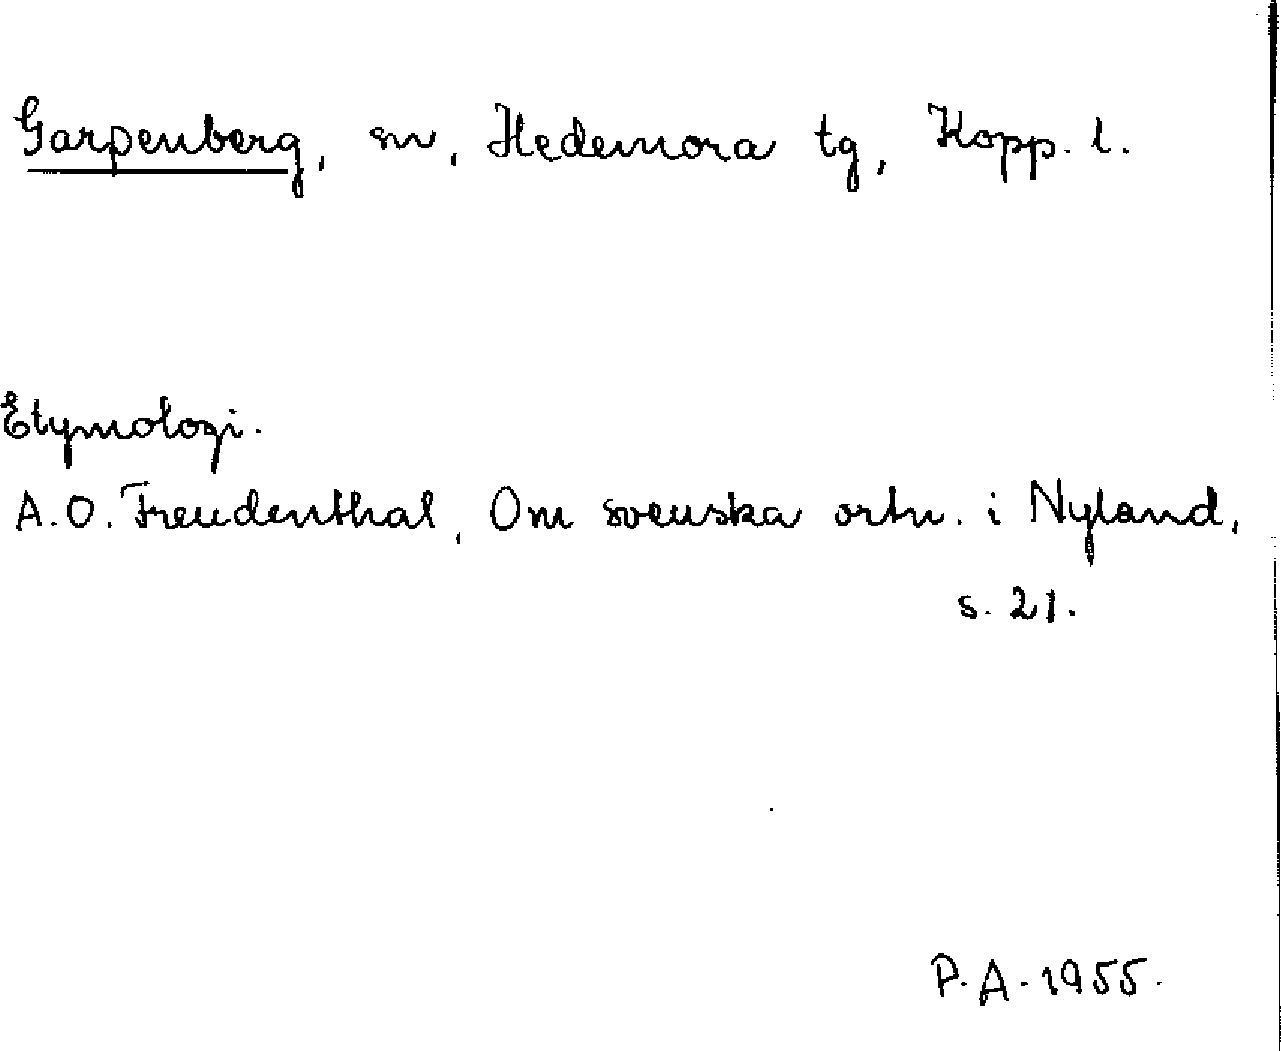 Garpenberg, sn, Hedemora tg, Kopp. l.
Etymologi.
A.O. Freudenthal, Om svenska ortn. i Nyland,
s. 21.
P.A. 1955.